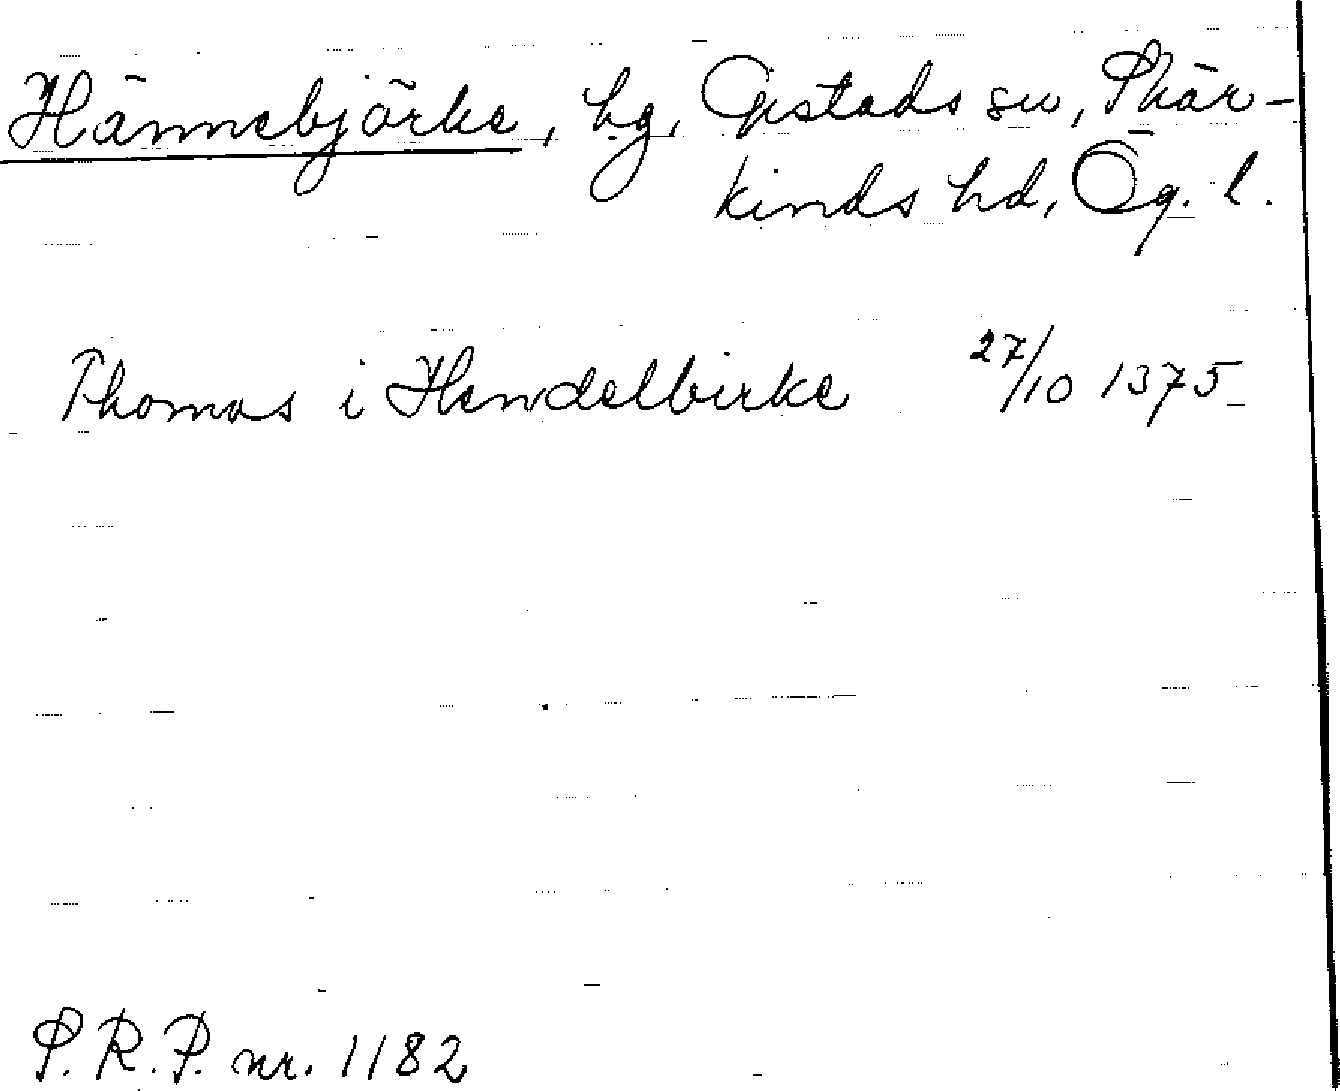 Hännebjörke, hg, Gistads sn, Skär-
kinds hd, Ög. l.
Thomas i Hendelbirke 27/10 1375
P. R. P. nr. 1182